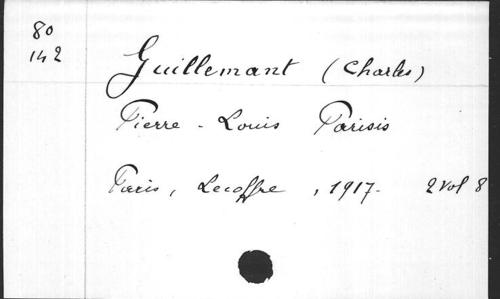 80
142
Guillemant (Charles)
Pierre - Louis Parisis
Paris, Lecoffre, 1917. 2 vol 8